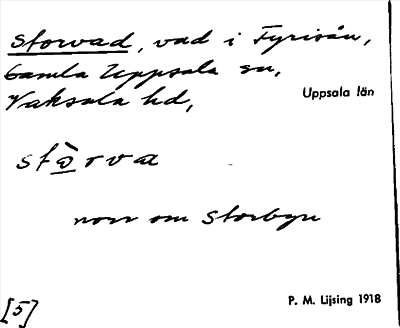 Storvad, vad i Fyrisån,
Gamla Uppsala sn,
Vaksala hd,
Uppsala län
stòrva
norr om Storbyn
[5]
P. M. Lijsing 1918